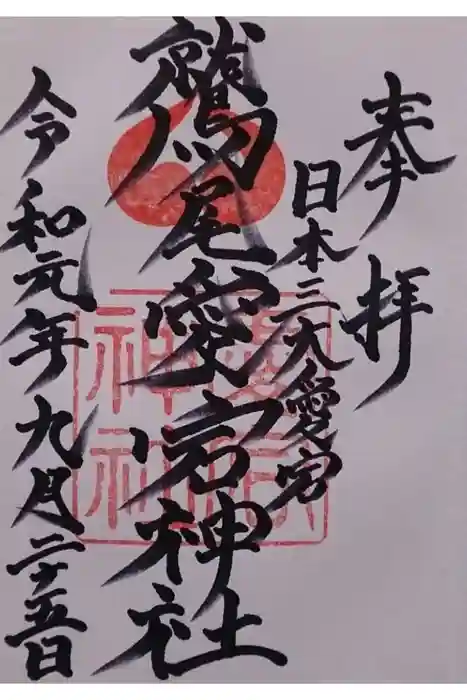 奉拝
日本三大愛宕
鷲尾愛宕神社
令和元年九月二十五日
愛宕
神社